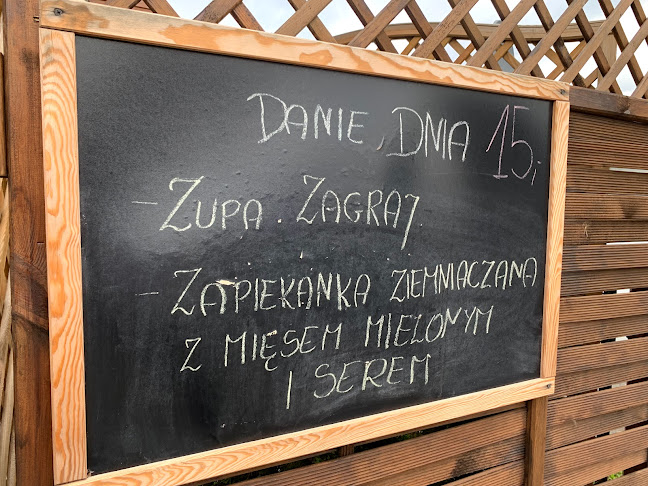 DANIE DNIA 15,-
- ZUPA. ZAGRAJ
- ZAPIEKANKA ZIEMNIACZANA
Z MIĘSEM MIELONYM
I SEREM